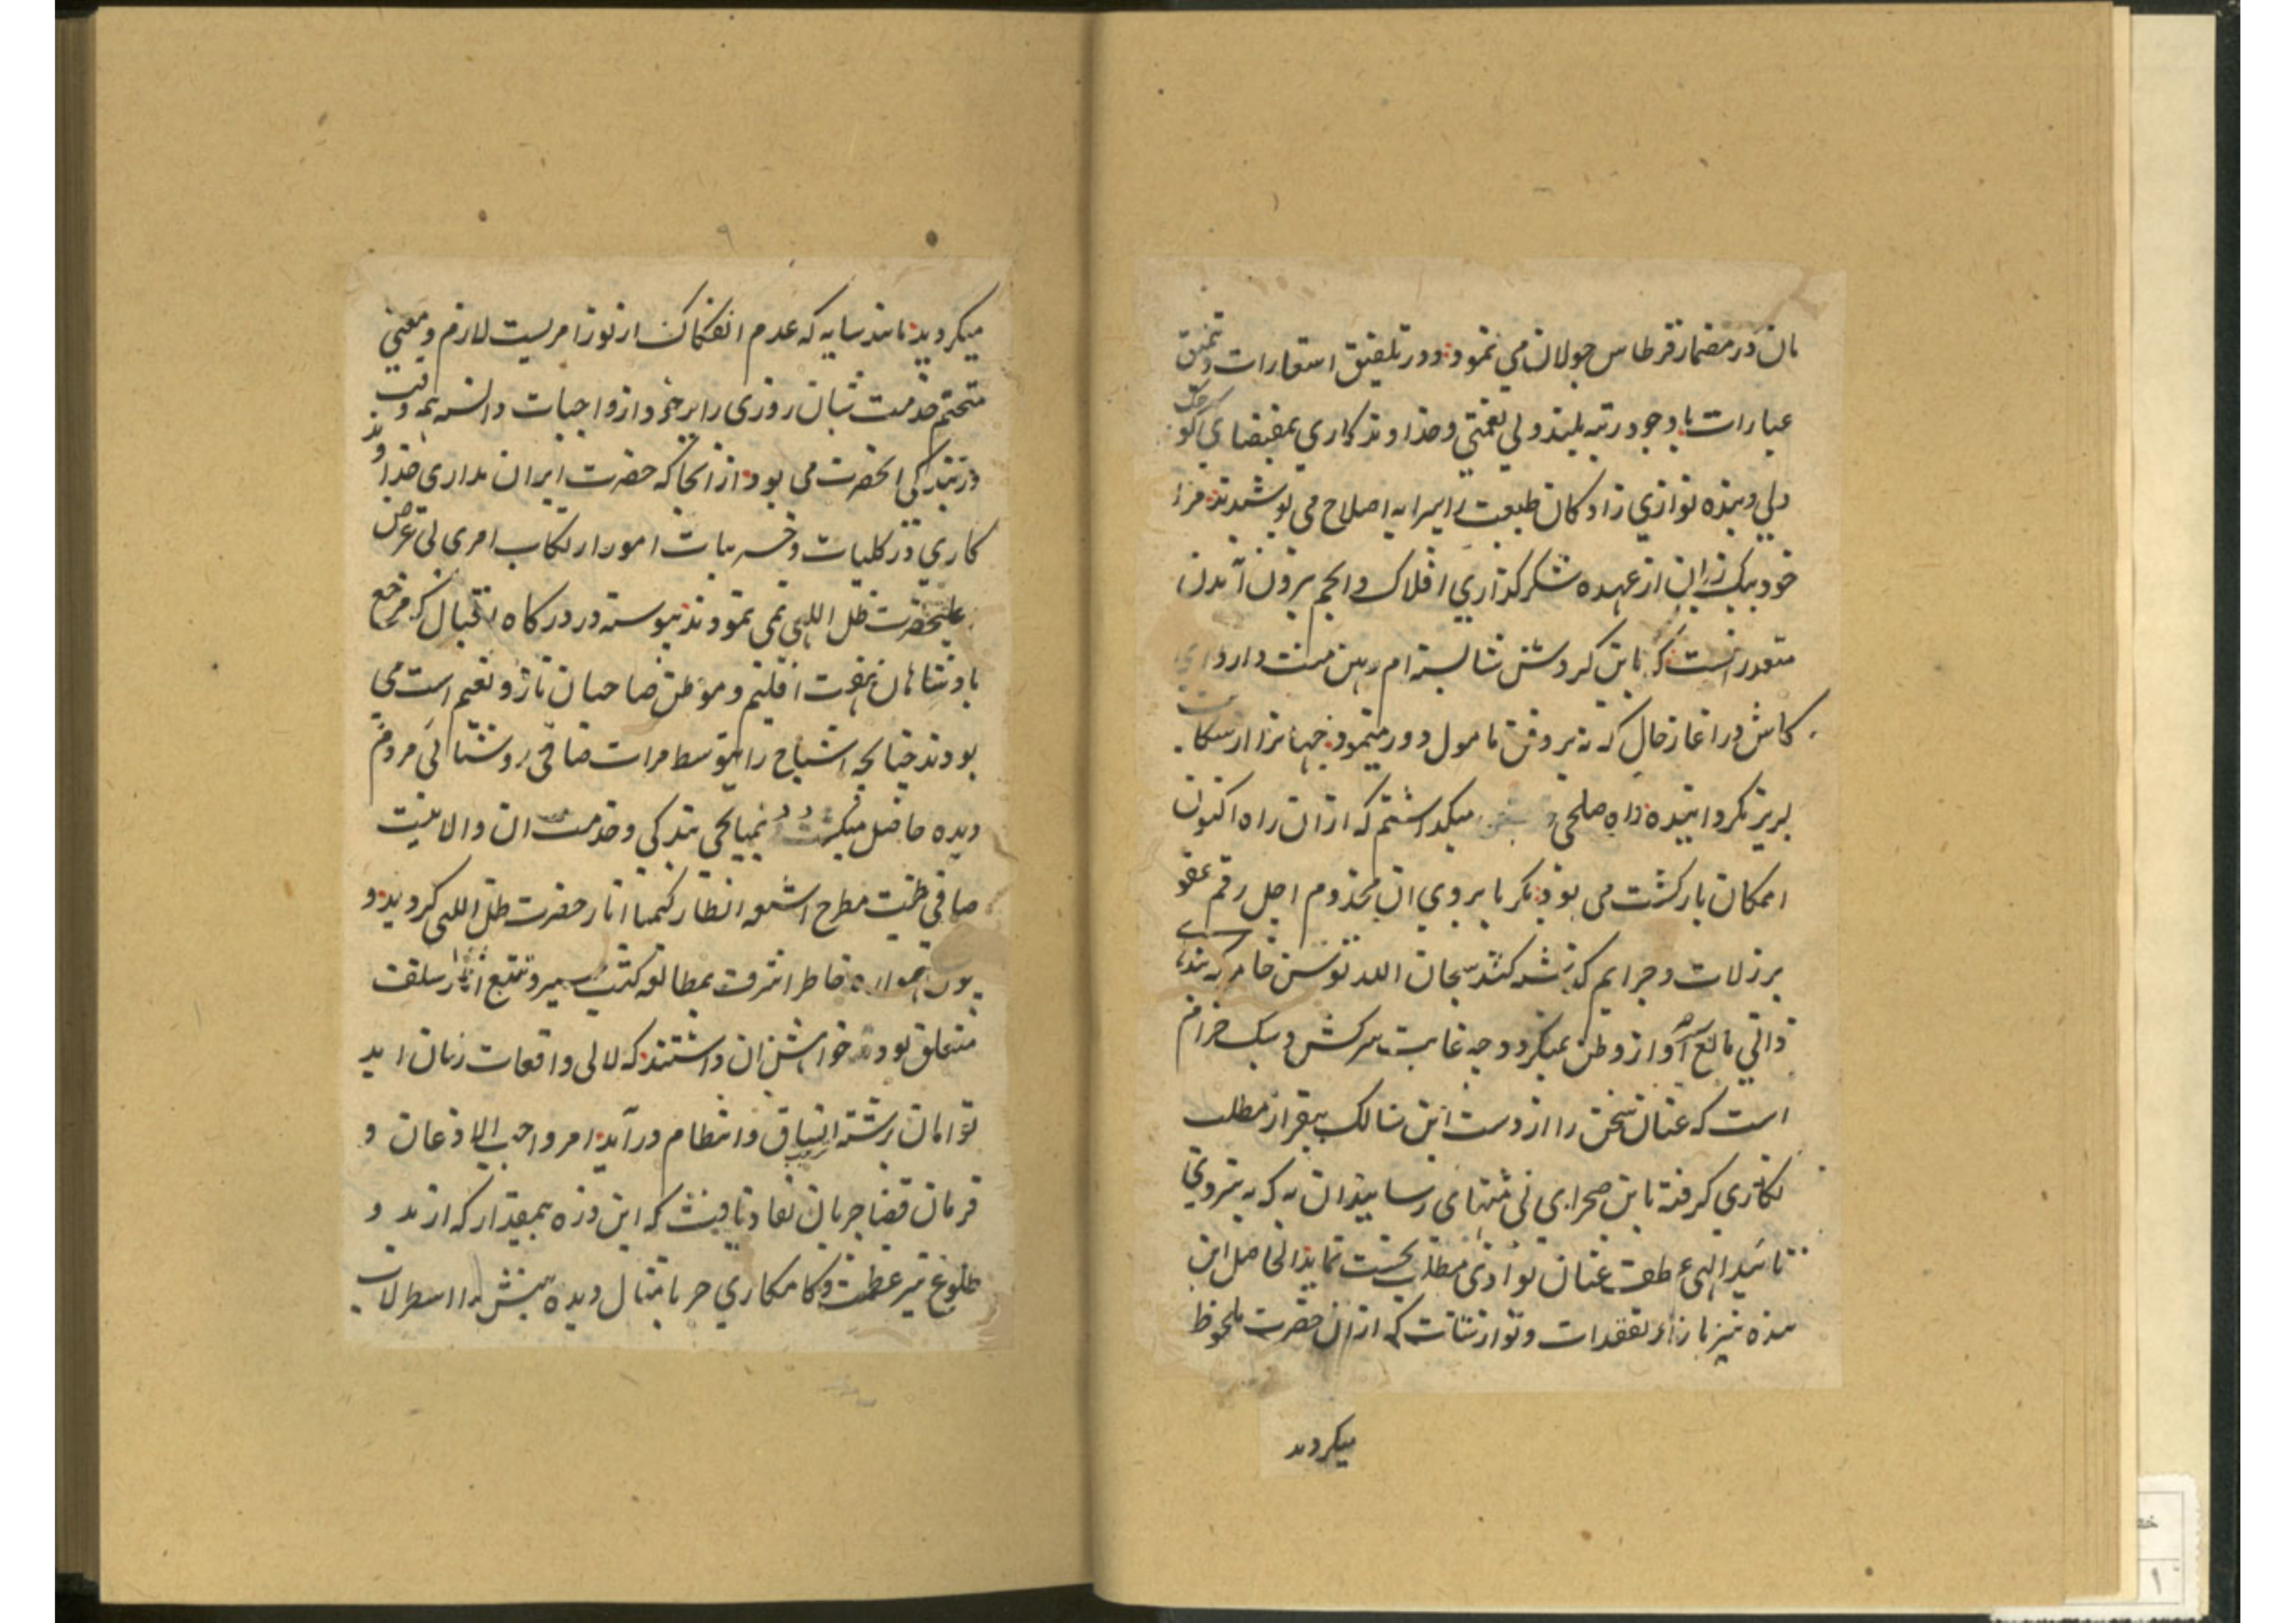 مان در مضمار قرطاس جولان می نمود و در تلفیق استعارات و تنمیق
عبارات با وجود رتبه بلند ولی نعمتی و خداوندکاری بمقتضای کوچک
دلی و بنده نوازی زادکان طبیعت را پیرایه اصلاح می پوشیدند مرا
خود بیک زبان از عهده شکرگذاری افلاک و انجم بیرون آمدن
متعذر است که باین کردش شایسته ام رهین منت دارد ای
کاش در اغاز حال که نه بر وفق مامول دور مینمود جهانرا از شکایت
لبریز نکرد ایتده راه صلحی میکداشتم که از آن راه اکنون
امکان بازکشت می بود مکر بابروی ان مخذوم اجل رقم عفو
بر زلات و جرایم کذشته کشند سبحان الله توسن خامه که بند
ذاتی مانع آواز وطن نمیکردد چه غایت سرکش و سبک خرام
است که عنان سخن را از دست این سالک بیقرار مطلب
نکاری کرفته باین صحرای بی منتها می رساند ان به که به نیروی
تائید الهی عطف عنان بوادی مطلب نخست نماید الحاصل این
بنده نیز بازاء تفقدات و نوازشات که از ان حضرت ملحوظ
میکردید
۹
میکردید مانند سایه که عدم انفکاک از نور امریست لازم و معنی
متحتم خدمت شبان روزی را بر خود از واجبات دانسته همه وقت
در بندکی انحضرت می بود از انجا که حضرت ایران مداری خداوند
کاری در کلیات و جزییات امور ارتکاب امری بی عرض
علیحضرت ظل اللهی نمی نمودند پیوسته در درکاه اقبال که مرجع
بادشاهان هفت اقلیم و موطن صاحبان تاز و نعیم است می
بودند چنانچه اشباح را بتوسط مرات صافی روشنائی مردم
دیده حاصل میکردد بمیانجی بندکی و خدمت ان والا نیت
صافی طینت مطرح اشعه انظار کیمیا اثار حضرت ظل اللهی کردید و
چون همواره خاطر اشرف بمطالعه کتب سیر و تتبع اثار سلف
متعلق بود خواهش ان داشتند که لالی واقعات زمان ابد
توامان برشته اتساق و انتظام درآید امر واجب الاذعان و
فرمان قضا جریان نفاد یافت که این ذره بیمقدار که از بدو
طلوع نیر عظمت و کامکاری حربا مثال دیده بینش را اسطرلاب